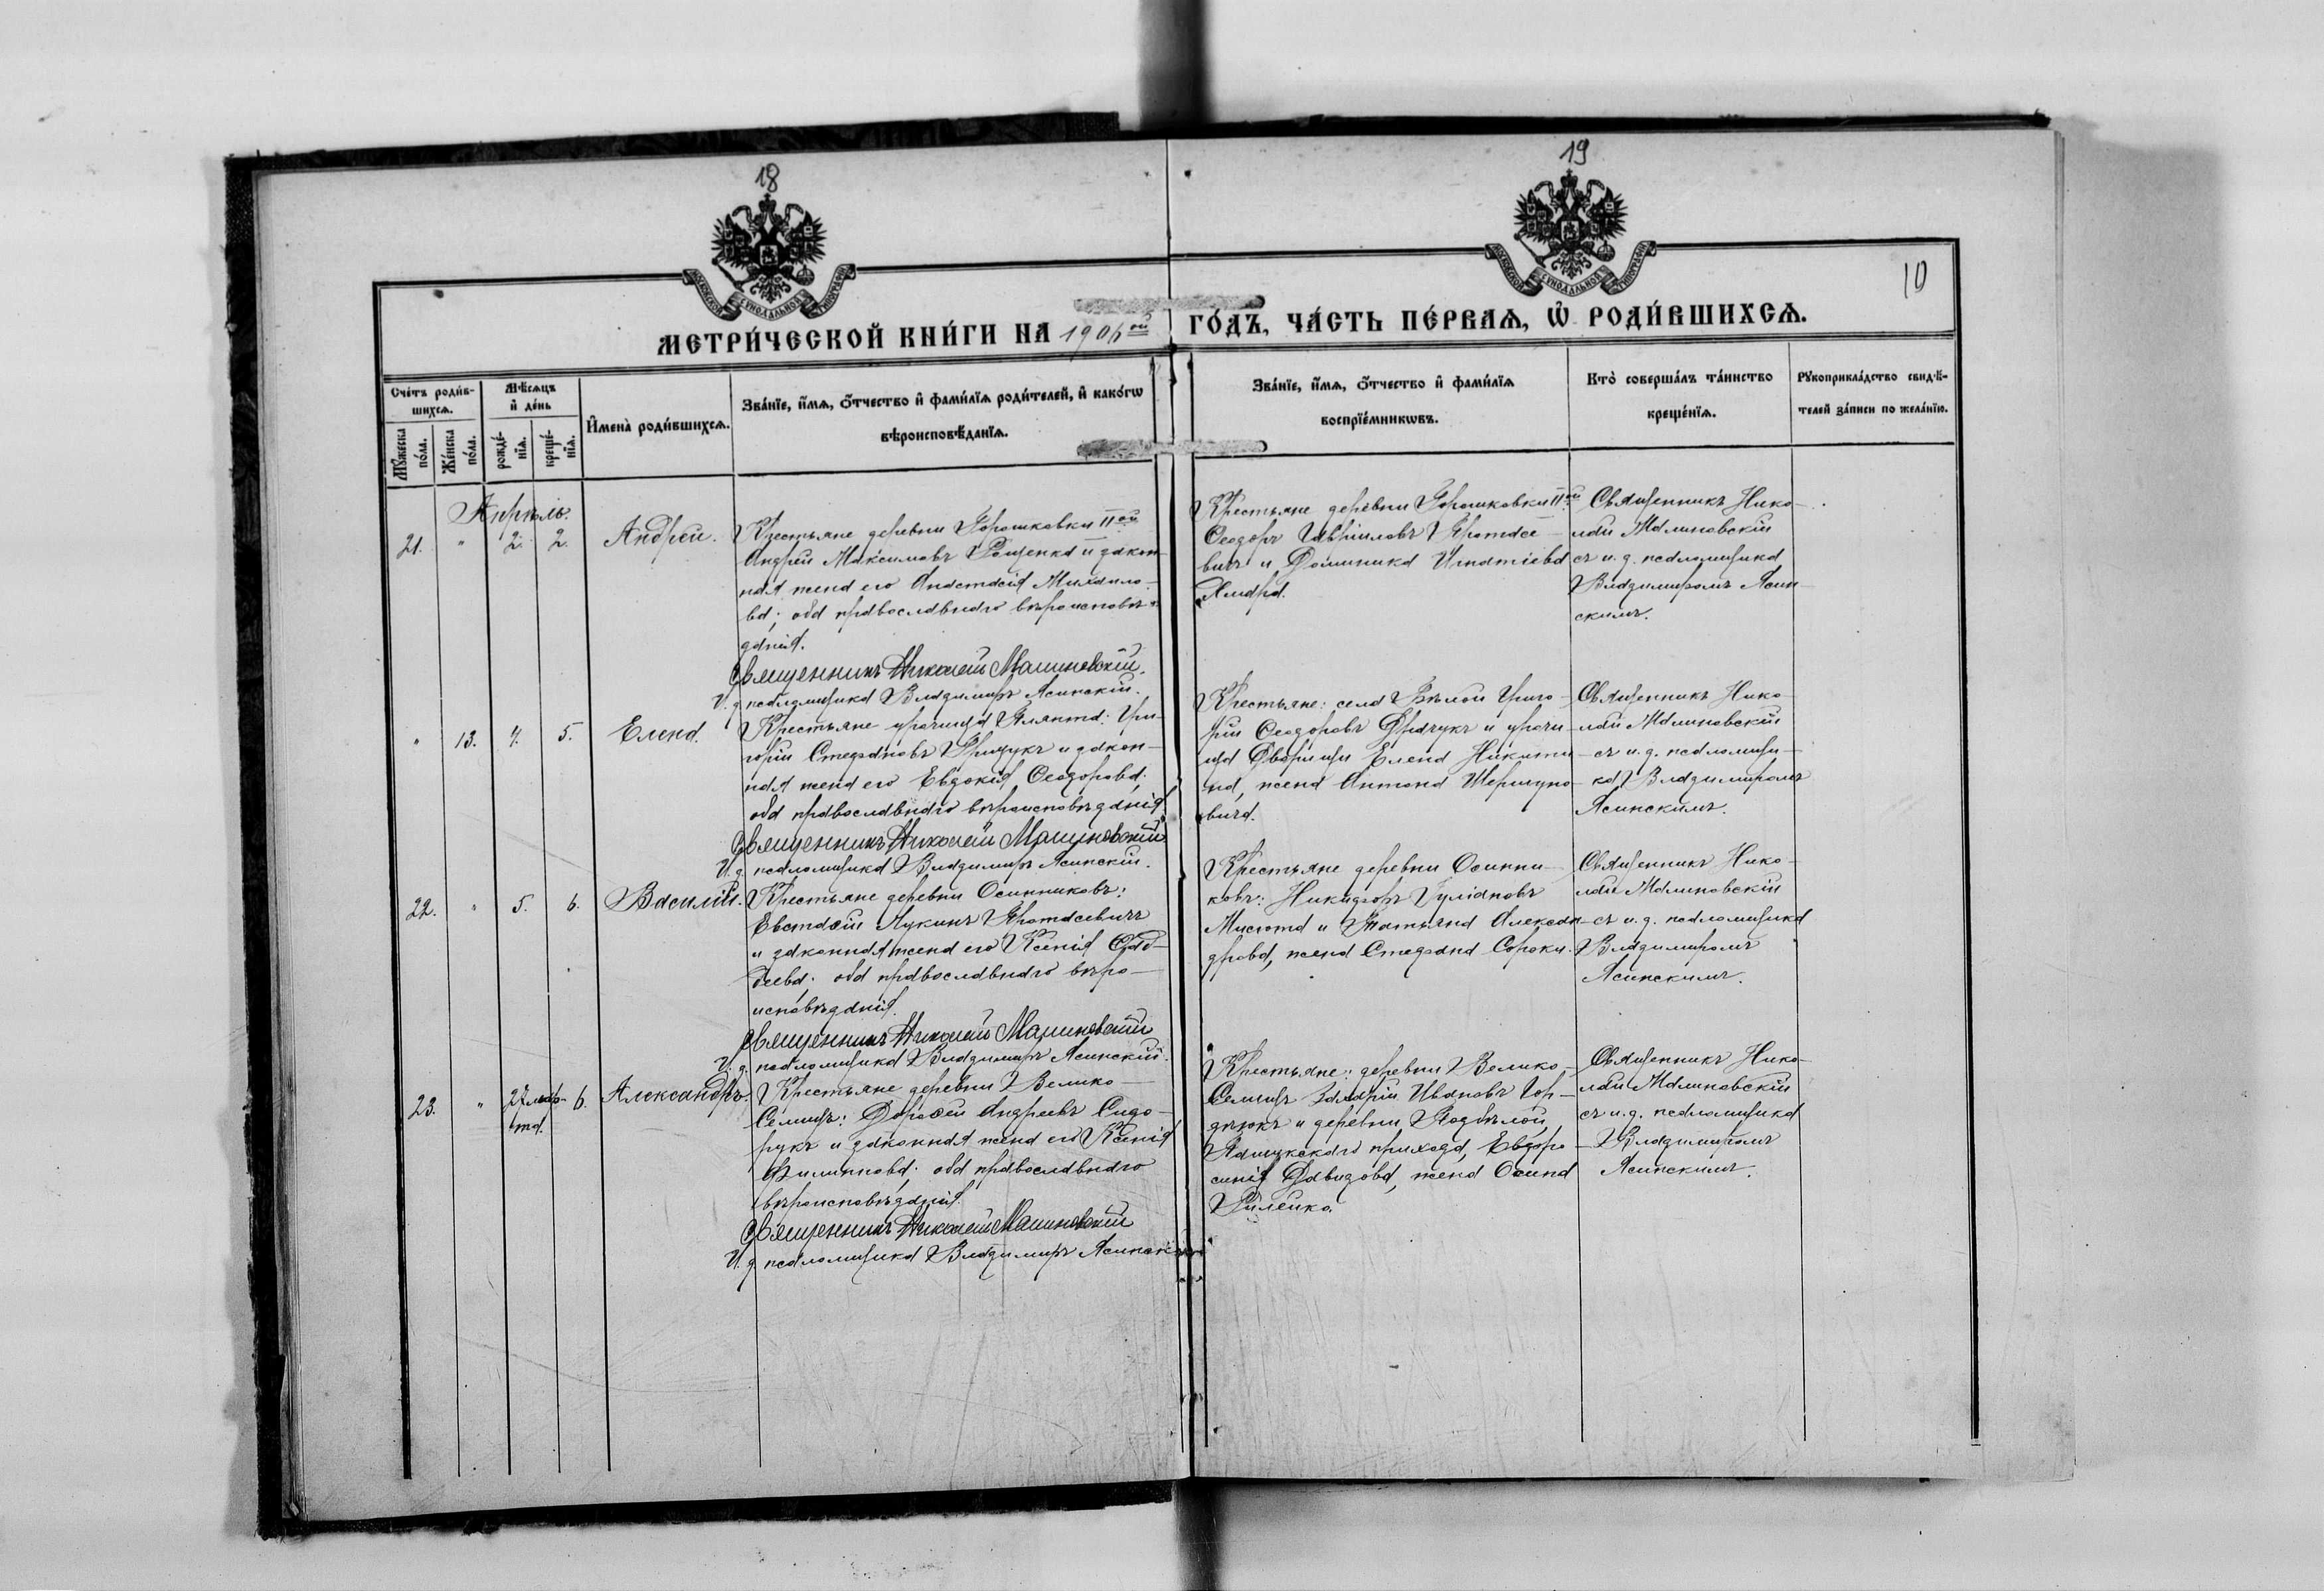 18
19
10
МЕТРИ́ЧЕСКОЙ КНИ́ГИ НА 1906ой ГО́ДЪ, ЧА́СТЬ ПЕ́РВАѦ, Ѡ РОДИ́ВШИХСѦ.
Сче́тъ роди́в-
шихсѧ.
Мꙋ́жеска по́ла.
Же́нска по́ла.
Мѣ́сѧцъ и де́нь
рожде́-нїѧ.
креще́-нїѧ.
И҆мена̀ роди́вшихсѧ.
Зва́нїе, и҆́мѧ, ѻ҆́тчество и҆ фами́лїѧ роди́телей, и҆ како́гѡ
вѣроисповѣ́данїѧ.
Зва́нїе, и҆́мѧ, ѻ҆́тчество и҆ фами́лїѧ
воспрїе́мникѡвъ.
Кто̀ соверша́лъ та́инство
креще́нїѧ.
Рꙋкоприкла́дство свидѣ́-
телей за́писи по жела́нїю.
Апрѣль.
21. " 2. 2. Андрей.
Крестьяне деревни Горошковки IIой
Андрей Максимовъ и закон-
ная жена его Анастасія Михаило-
ва; оба православнаго вѣроисповѣ-
данія.
Священникъ Николай Малиновскій.
И. д. псаломщика Владимиръ Ясинскій.
Крестьяне деревни Горошковки IIой
Ѳеодоръ Гавріиловъ Протасе-
вичъ и Домникa Игнатіева
Священникъ Нико-
лай Малиновскій
съ и. д. псаломщика
Владимиромъ Ясин-
скимъ.
" 13. 4. 5. Елена.
Крестьяне урочища Плянта: Гри-
горій Стефановъ Грищукъ и закон-
ная жена его Евдокія Ѳеодорова;
оба православнаго вѣроисповѣданія.
Священникъ Николай Малиновскій
И. д. псаломщика Владимиръ Ясинскій.
Крестьяне: села Бѣлой Григо-
рій Ѳеодоровъ и урочи-
ща Дворищи Елена Никити-
на, жена Антона
вича.
Священникъ Нико-
лай Малиновскій
съ и. д. псаломщи-
ка Владимиромъ
Ясинскимъ.
22. " 5. 6. Василій.
Крестьяне деревни Осинниковъ:
Евстаѳій Лукинъ Протасевичъ
и законная жена его Ксенія Ѳад-
деева; оба православнаго вѣро-
исповѣданія.
Священникъ Николай Малиновскій
И. д. псаломщика Владимиръ Ясинскій.
Крестьяне деревни Осинни-
ковъ: Никифоръ Іуліановъ
Мисюта и Татьяна Алексан-
дрова, жена Стефана Сороки.
Священникъ Нико-
лай Малиновскій
съ и. д. псаломщика
Владимиромъ
Ясинскимъ.
23. " 27 мар-
та. 6. Александръ.
Крестьяне деревни Велико-
Селищъ: Дороѳей Андреевъ Сидо-
рукъ и законная жена его Ксенія
Филиппова; оба православнаго
вѣроисповѣданія.
Священникъ Николай Малиновскій
И. д. псаломщика Владимиръ Ясинскій.
Крестьяне: деревни Велико-
Селищъ Иларій Ивановъ Гор-
дѣюкъ и деревни Подбѣлой,
прихода, Евфро-
синія Давидова, жена Осипа
Священникъ Нико-
лай Малиновскій
съ и. д. псаломщика
Владимиромъ
Ясинскимъ.